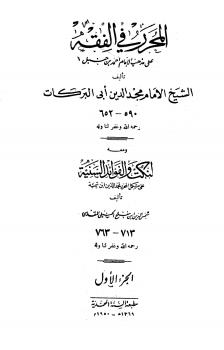 المحرر في الفقه
على مذهب الإمام أحمد بن حنبل
تأليف
الشيخ الإمام مجد الدين أبي البركات
٥٩٠ - ٦٥٢
رحمه الله وغفر لنا وله
ومعه
النكت والفوائد السنية
على مشكل المحرر لمجد الدين ابن تيمية
تأليف
شمس الدين بن مفلح الحنبلي المقدسي
٧١٣ - ٧٦٣
رحمه الله وغفر لنا وله
الجزء الأول
مطبعة السنة المحمدية
١٣٦٩ هـ - ١٩٥٠ م